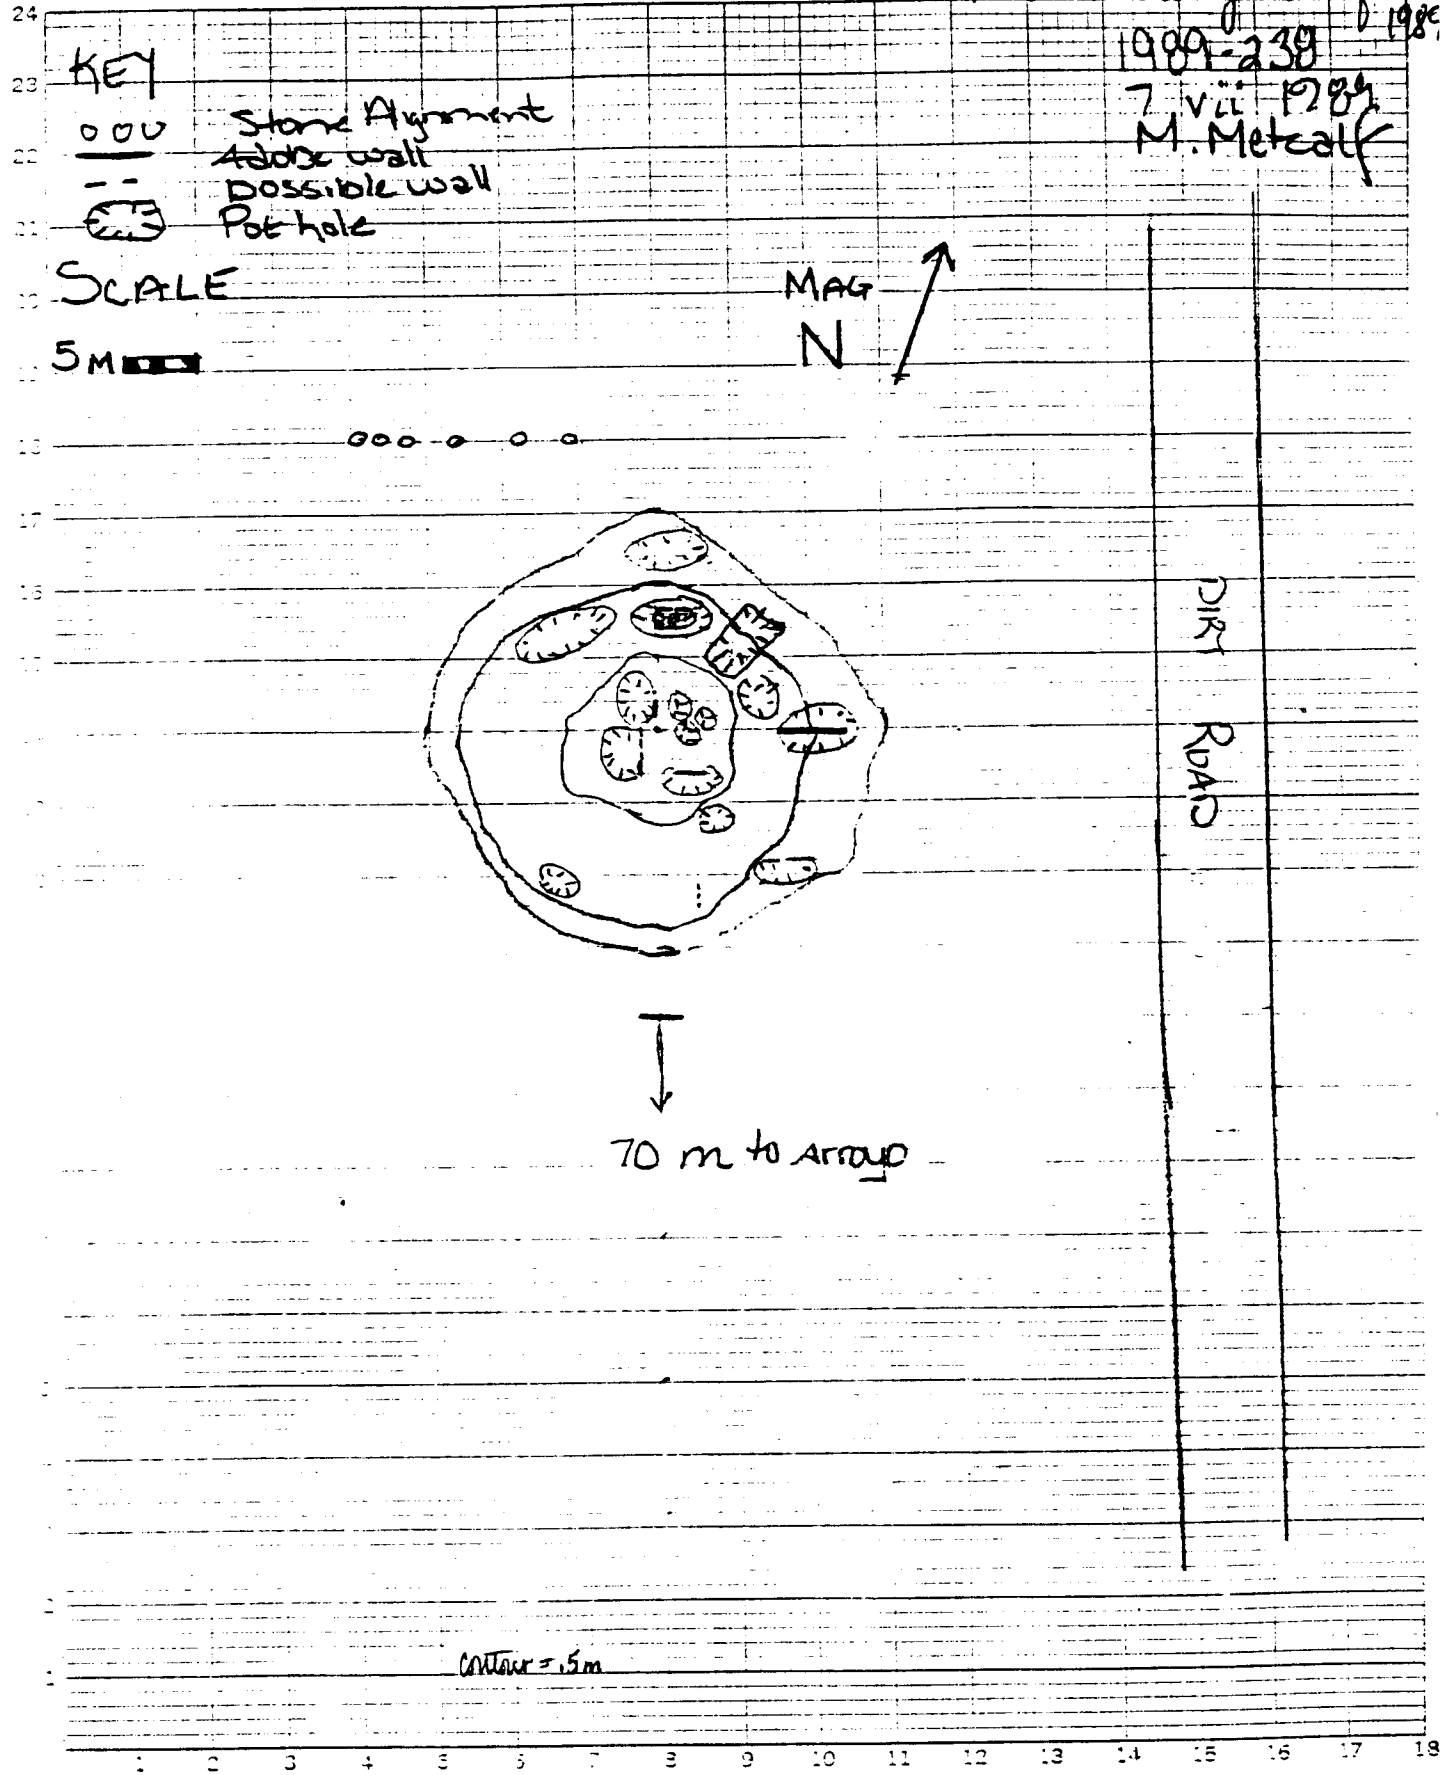 24
23
22
21
18
17
15
KEY
Stone Alignment
Adobe wall
possible wall
Pot hole
SCALE
5M
1989-238
7 vii 1989
M. Metcalf
MAG
N
DIRT ROAD
70 m to Arroyo
contour = .5m
1 2 3 4 5 6 7 8 9 10 11 12 13 14 15 16 17 18